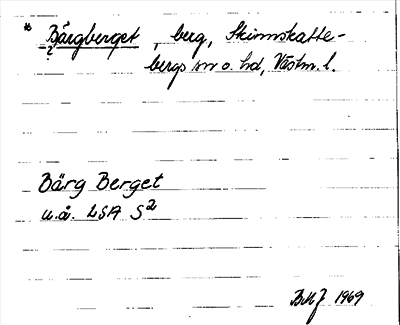 * Bärgberget, berg, Skinnskatte-
?
bergs sn o. hd, Västm. l.
Bärg Berget
u.å. LSA S2
BMJ 1969